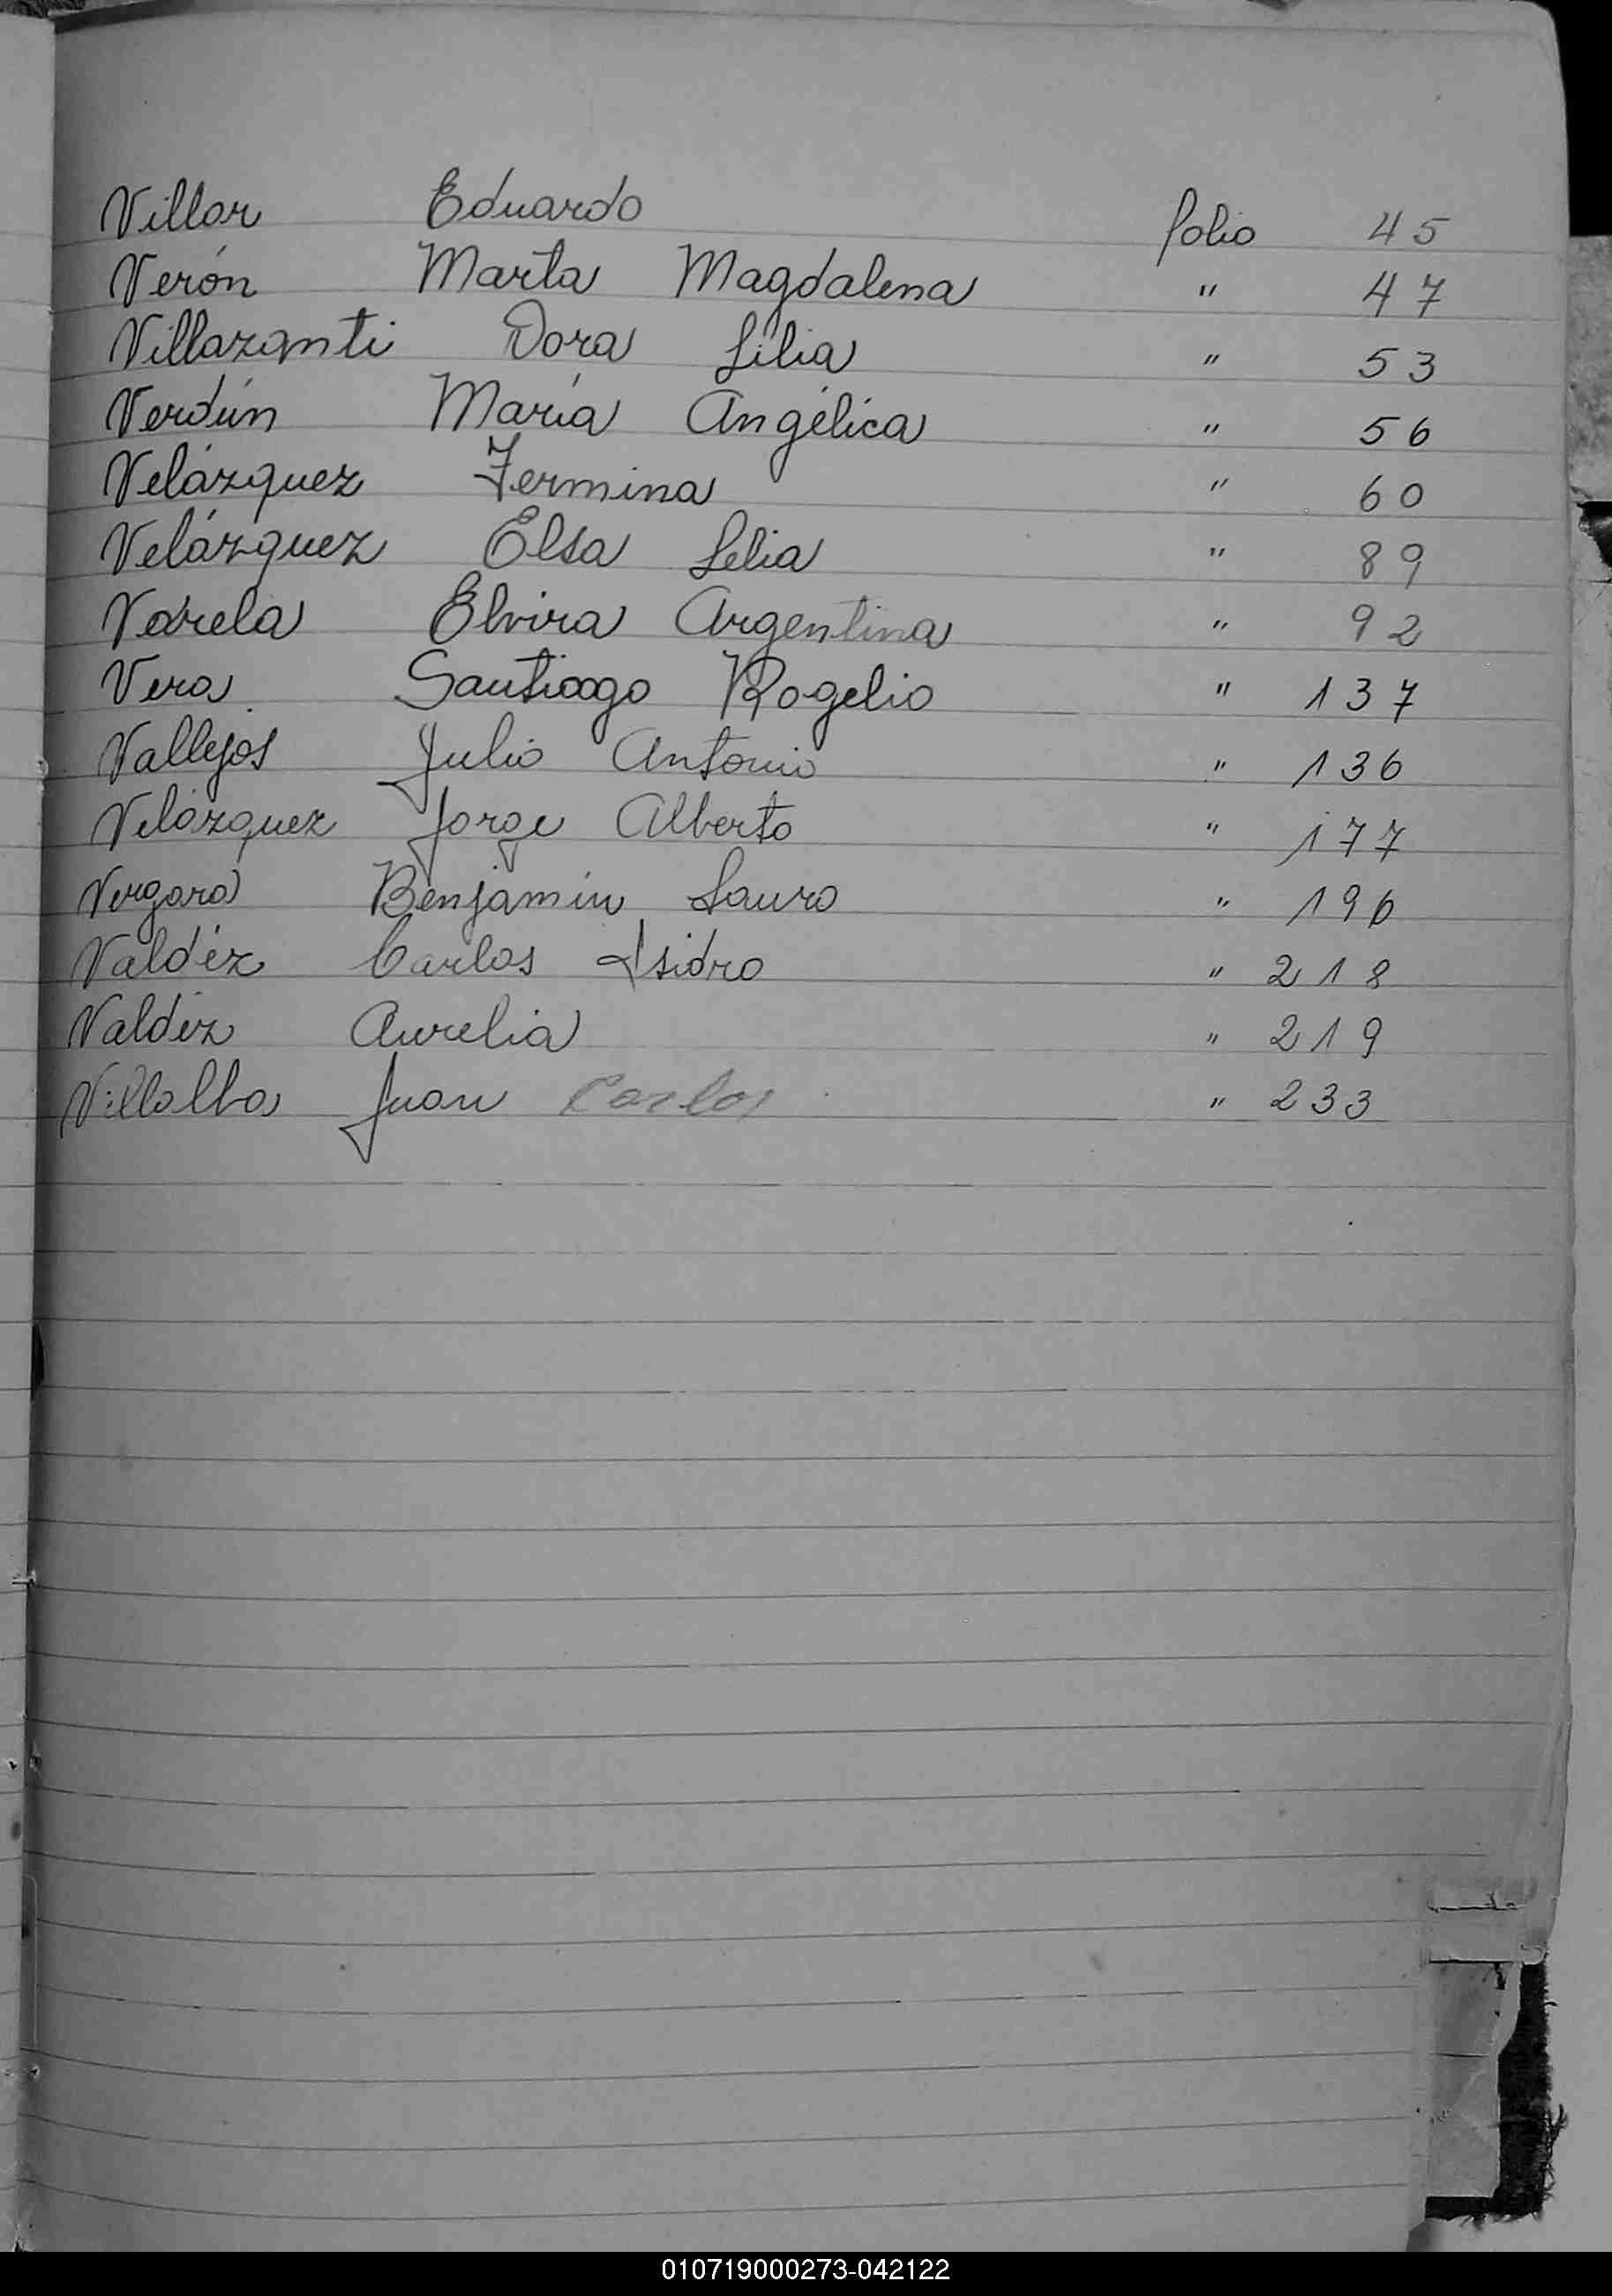 Villar Eduardo folio 45
Verón Marta Magdalena " 47
Villazanti Dora Lilia " 53
Verdún María Angélica " 56
Velázquez Fermina " 60
Velázquez Elsa Lelia " 89
Varela Elvira Argentina " 92
Vera Santiago Rogelio " 137
Vallejos Julio Antonio " 136
Velázquez Jorge Alberto " 177
Vergara Benjamín Lauro " 196
Valdéz Carlos Isidro " 218
Valdéz Aurelia " 219
Villalba Juan Carlos " 233
010719000273-042122